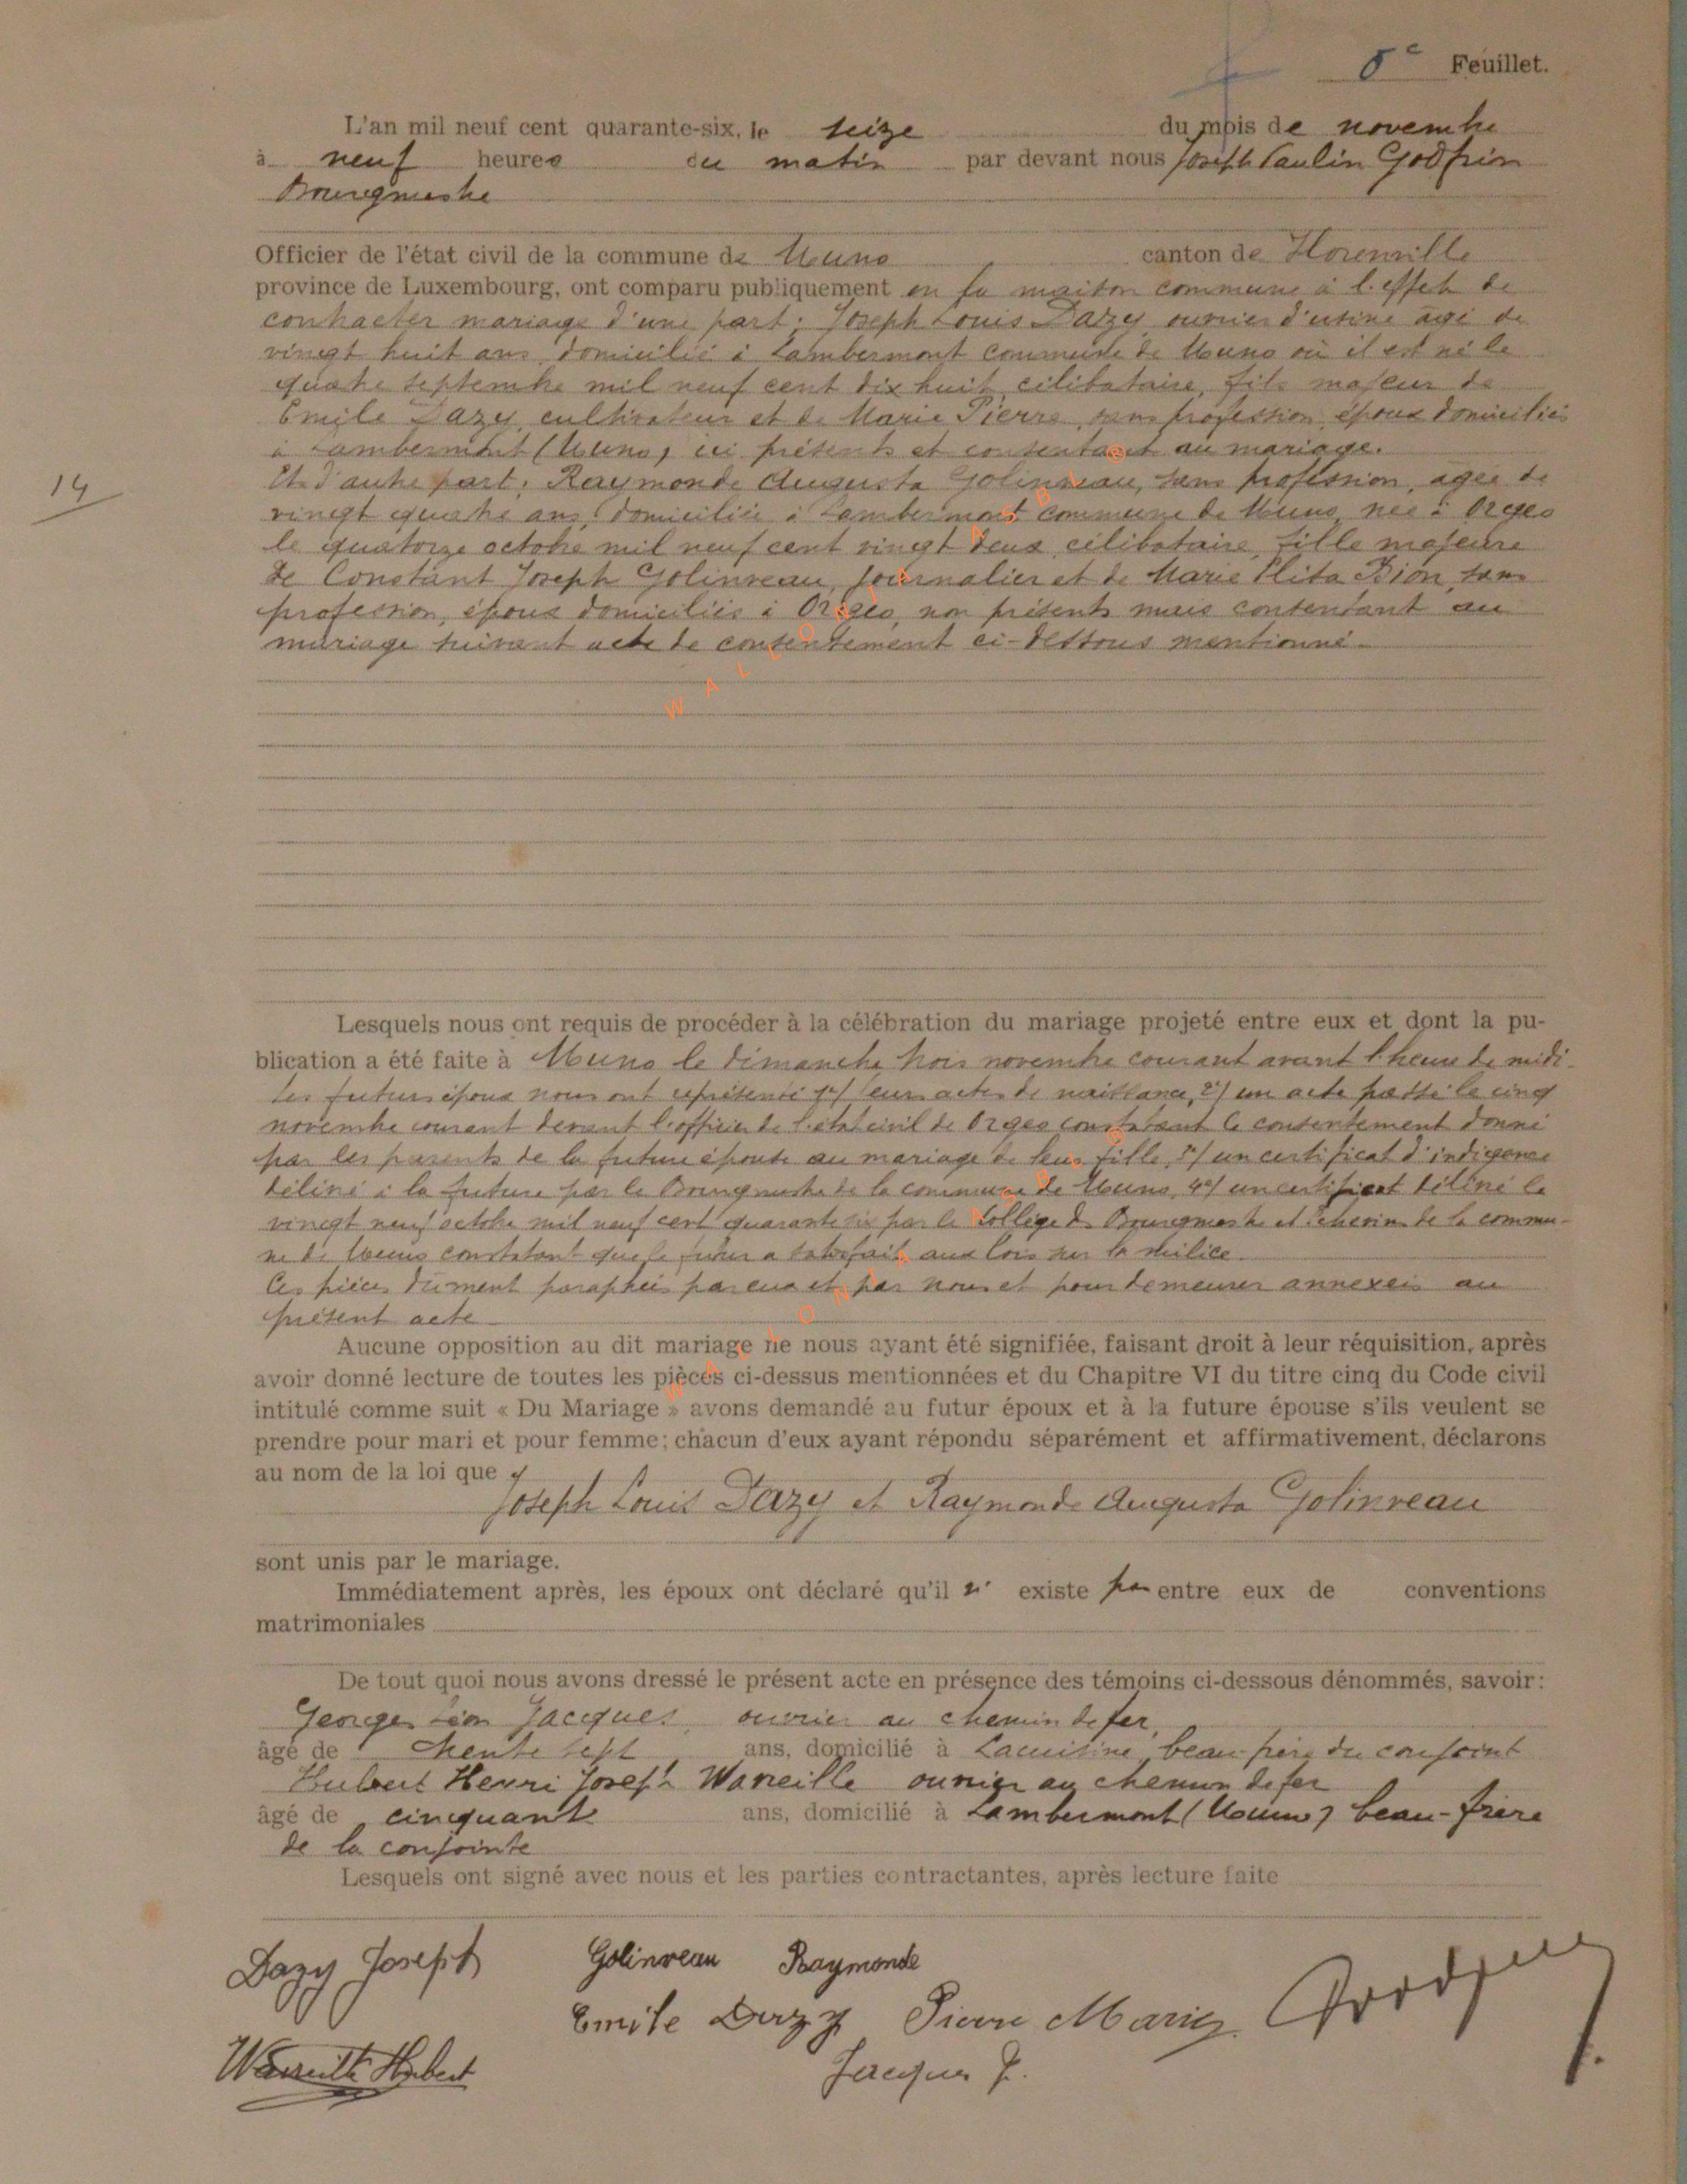 8e Feuillet.
L'an mil neuf cent quarante-six, le seize du mois de novembre
à neuf heures du matin par devant nous Joseph Paulin Godfrin
Bourgmestre
Officier de l'état civil de la commune de Muno canton de Florenville
province de Luxembourg, ont comparu publiquement en la maison commune à l'effet de
contracter mariage d'une part; Joseph Louis Dazy ouvrier d'usine agé de
vingt huit ans, domicilié à Lambermont commune de Muno où il est né le
quatre septembre mil neuf cent dix huit, célibataire, fils majeur de
Emile Dazy, cultivateur et de Marie Pierre, sans profession, époux domiciliés
à Lambermont (Muno) ici présents et consentant au mariage.
14
Et d'autre part, Raymonde Augusta Golinveau, sans profession, agée de
vingt quatre ans, domiciliée à Lambermont commune de Muno, née à Orgeo
le quatorze octobre mil neuf cent vingt deux, célibataire, fille majeure
de Constant Joseph Golinveau, journalier et de Marie Elita Bion, sans
profession, époux domiciliés à Orgeo, non présents mais consentant au
mariage suivant acte de consentement ci-dessous mentionné.
WALLONIA ASBL ®
Lesquels nous ont requis de procéder à la célébration du mariage projeté entre eux et dont la pu-
blication a été faite à Muno le dimanche trois novembre courant avant l'heure de midi.
Les futurs époux nous ont représenté 1°/ leurs actes de naissance, 2°/ un acte passé le cinq
novembre courant devant l'officier de l'état civil de Orgeo constatant le consentement donné
par les parents de la future épouse au mariage de leur fille, 3°/ un certificat d'indigence
délivré à la future par le Bourgmestre de la commune de Muno, 4°/ un certificat délivré le
vingt neuf octobre mil neuf cent quarante six par le Collège des Bourgmestre et Echevins de la commu-
ne de Muno constatant que le futur a satisfait aux lois sur la milice.
Ces pièces dûment paraphées par eux et par nous et pour demeurer annexées au
présent acte
WALLONIA ASBL ®
Aucune opposition au dit mariage ne nous ayant été signifiée, faisant droit à leur réquisition, après
avoir donné lecture de toutes les pièces ci-dessus mentionnées et du Chapitre VI du titre cinq du Code civil
intitulé comme suit « Du Mariage » avons demandé au futur époux et à la future épouse s'ils veulent se
prendre pour mari et pour femme; chacun d'eux ayant répondu séparément et affirmativement, déclarons
au nom de la loi que
Joseph Louis Dazy et Raymonde Augusta Golinveau
sont unis par le mariage.
Immédiatement après, les époux ont déclaré qu'il n' existe pas entre eux de conventions
matrimoniales
De tout quoi nous avons dressé le présent acte en présence des témoins ci-dessous dénommés, savoir:
Georges Léon Jacques, ouvrier au chemin de fer,
âgé de trente sept ans, domicilié à Lacuisine, beau-frère du conjoint
Hubert Henri Joseph Wareille ouvrier au chemin de fer
âgé de cinquante ans, domicilié à Lambermont (Muno) beau-frère
de la conjointe
Lesquels ont signé avec nous et les parties contractantes, après lecture faite
Dazy Joseph Golinveau Raymonde
Emile Dazy Pierre Marie Godfrin
Wareille Hubert Jacques G.